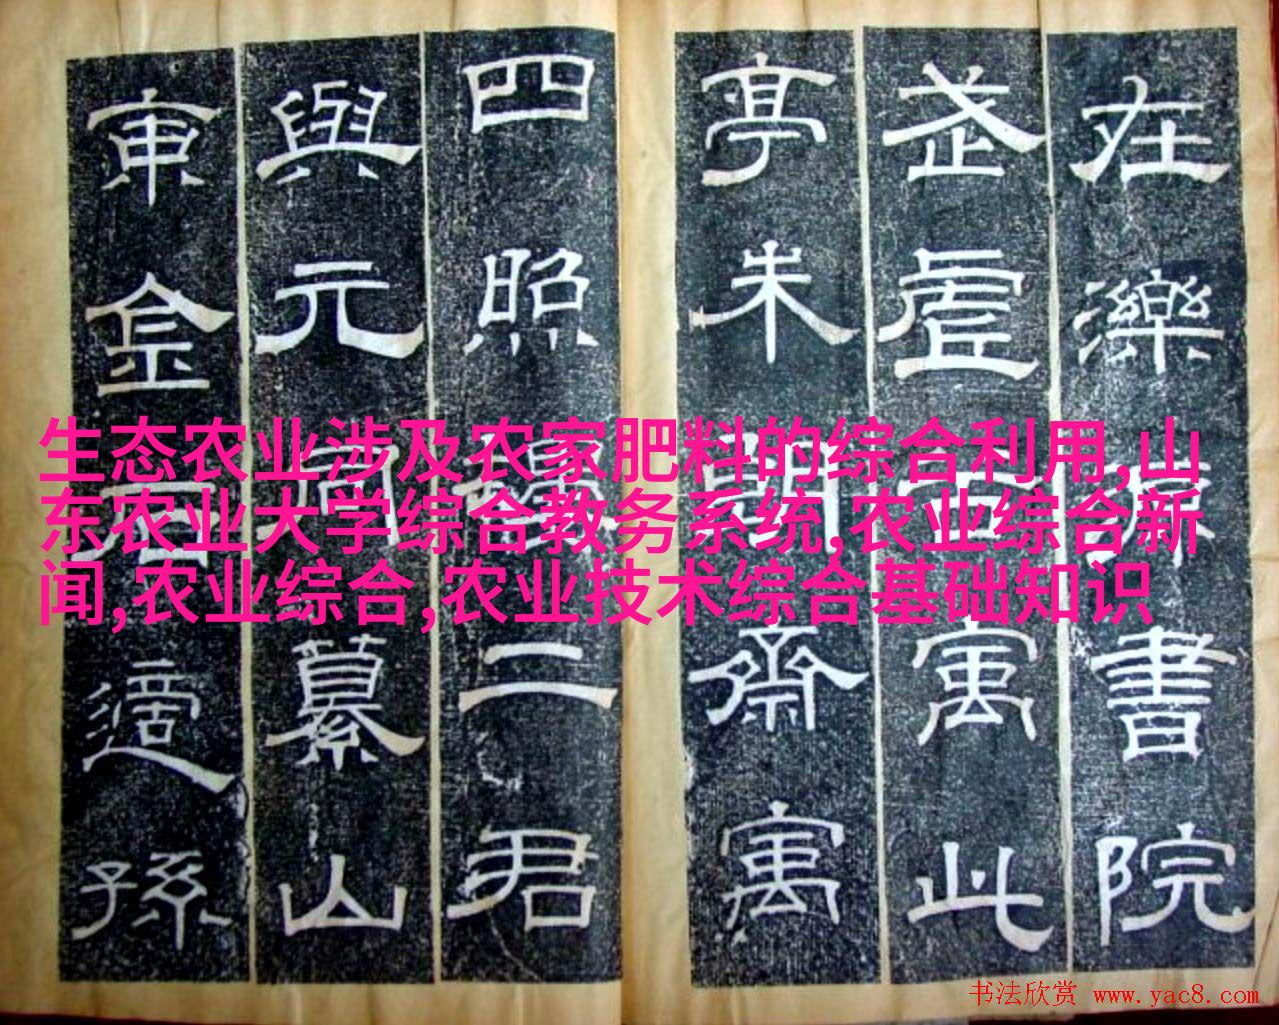 在濼書院
武虛寓此
亭朱朗齋寓
四照二君
與元同纂山
東金石適孫
生态农业涉及农家肥料的综合利用,山
东农业大学综合教务系统,农业综合新
闻,农业综合,农业技术综合基础知识
书法欣赏 www.yac8.com